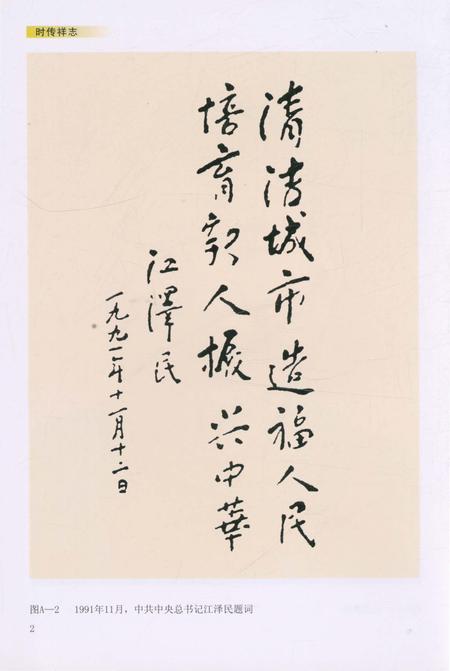 时传祥志
清洁城市造福人民
培育新人振兴中華
江澤民
一九九一年十一月十二日
图A—2 1991年11月，中共中央总书记江泽民题词
2